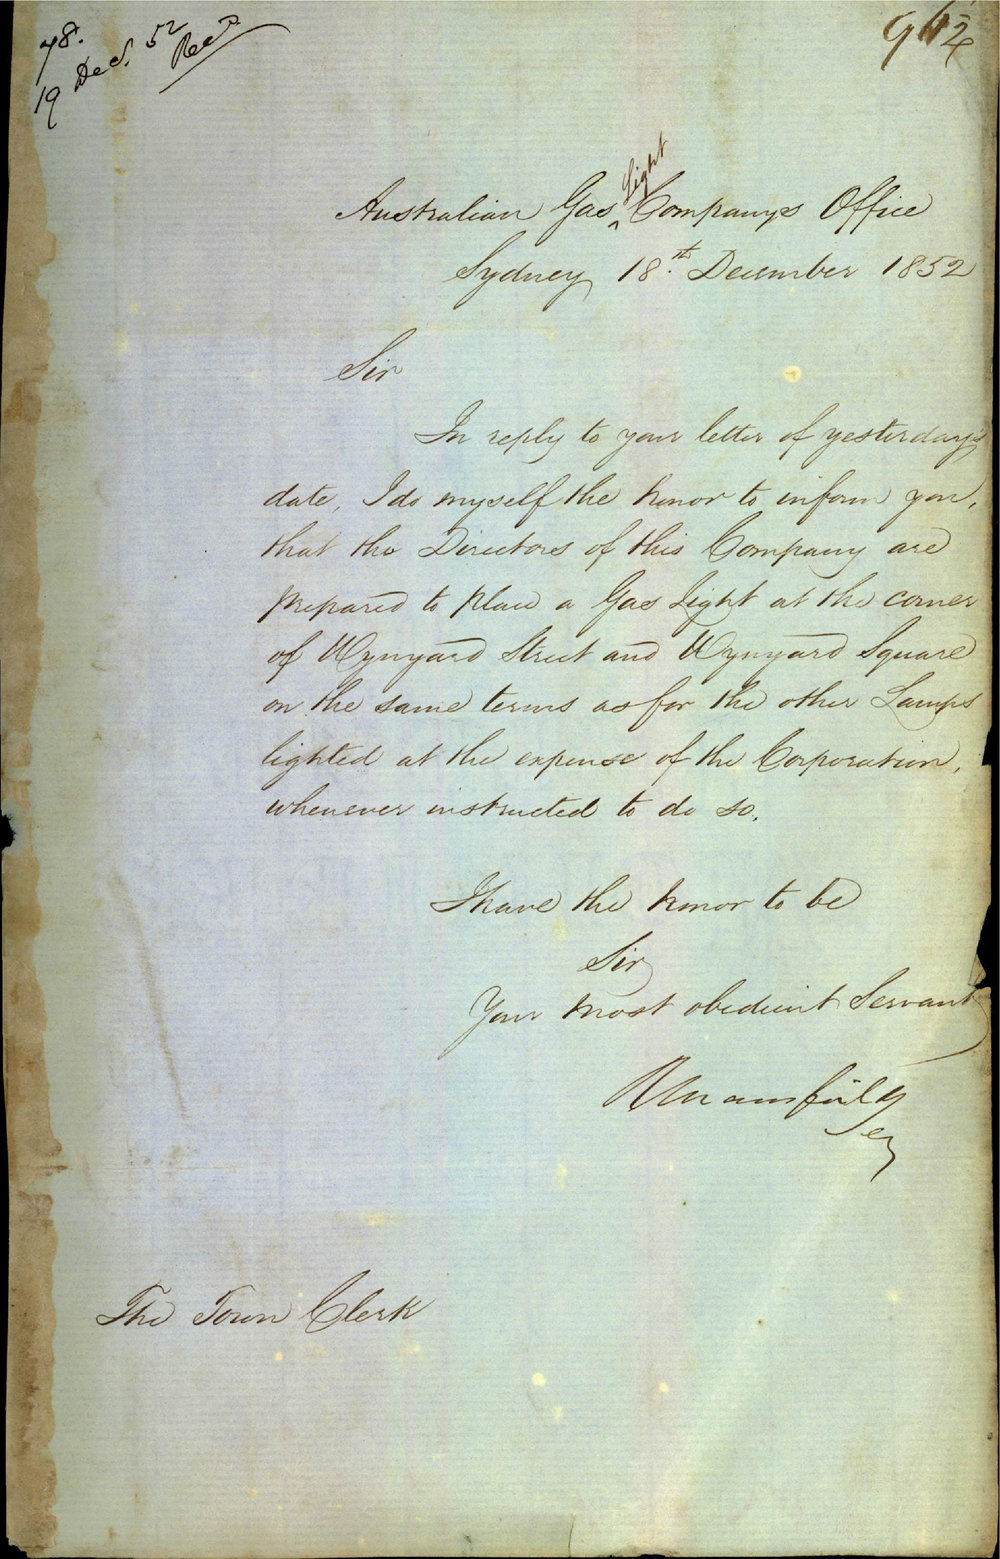 78.
19 Decr. 52
Recd
Australian Gas Light Companys Office
Sydney 18.th December 1852
Sir
In reply to your letter of yesterday's
date, I do myself the honor to inform you,
that the Directors of this Company are
prepared to place a Gas Light at the corner
of Wynyard Street and Wynyard Square
on the same terms as for the other Lamps
lighted at the expense of the Corporation,
whenever instructed to do so.
I have the honor to be
Sir
Your most obedient Servant
R Mansfield
Secy
The Town Clerk